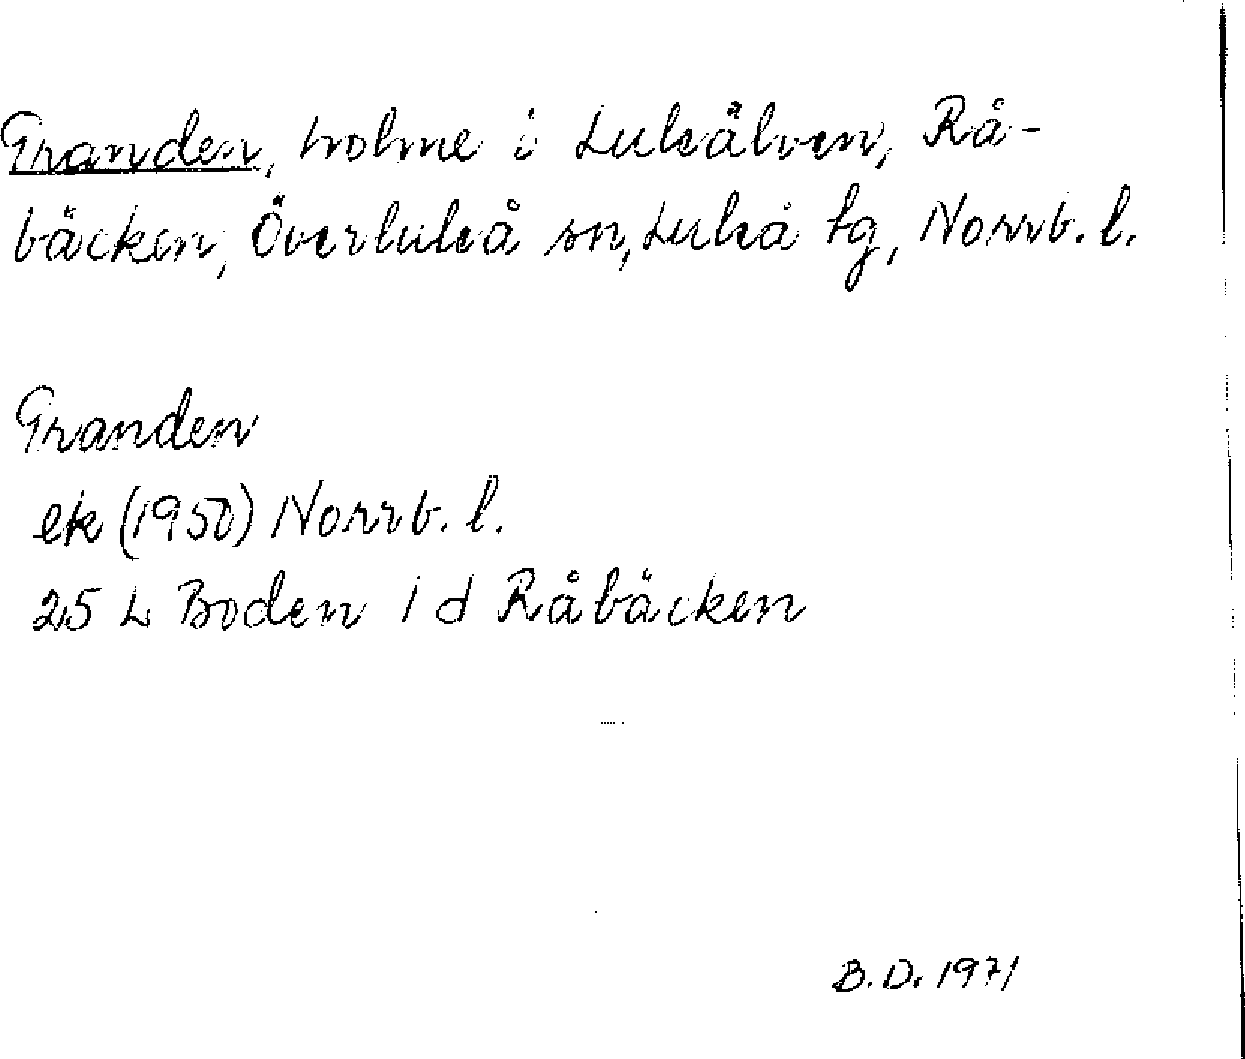 Granden, holme i Luleälven, Rå-
bäcken, Överluleå sn, Luleå tg, Norrb. l.
Granden
ek (1950) Norrb. l.
25 L Boden i d Råbäcken
B.D. 1971